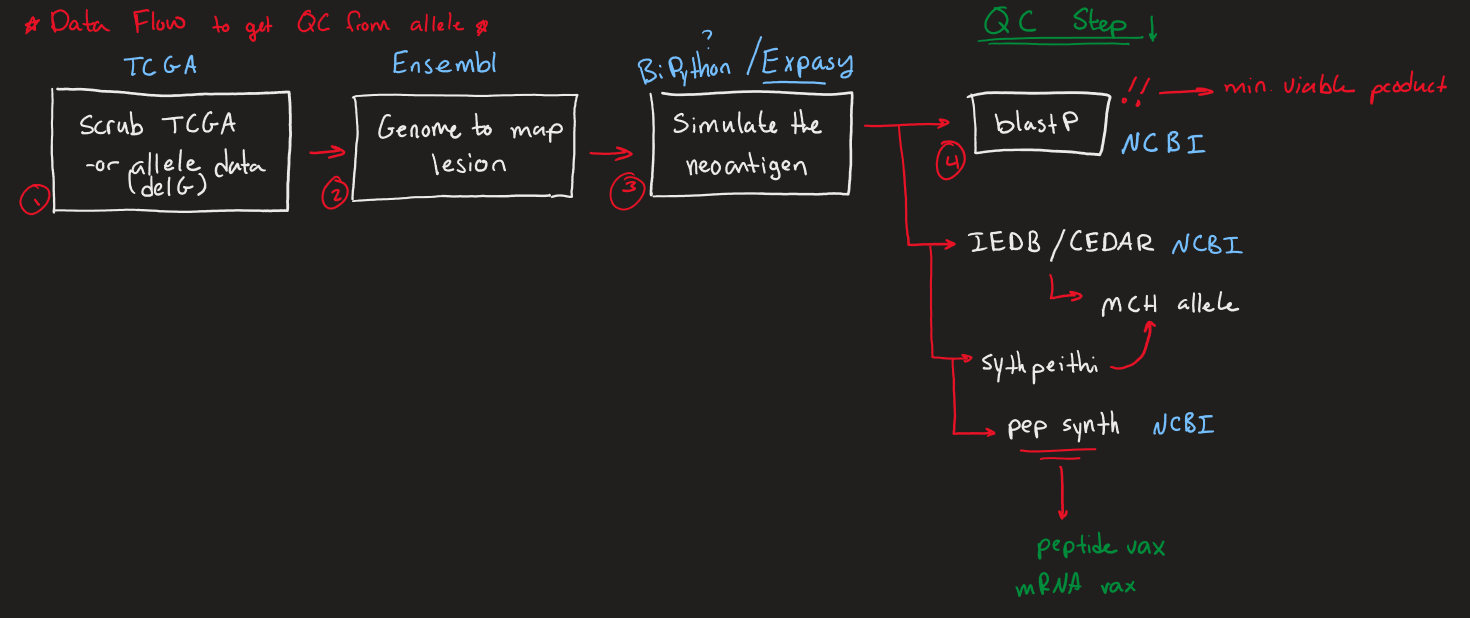 * Data Flow to get QC from allele *
QC Step ↓
TCGA
Scrub TCGA
-or allele data
(delG)
1
Ensembl
Genome to map
lesion
2
?
BiPython / Expasy
Simulate the
neoantigen
3
blastP
!! → min. viable product
NCBI
4
IEDB / CEDAR NCBI
MCH allele
sythpeithi
pep synth NCBI
peptide vax
mRNA vax